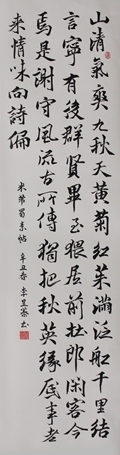 山清氣爽九秋天黃菊紅茱滿泛船千里結
言寧有後群賢畢至猥居前杜郎閑客今
焉是謝守風流古所傳獨把秋英緣底事老
來情味向詩偏
米芾蜀素帖 辛丑春 李